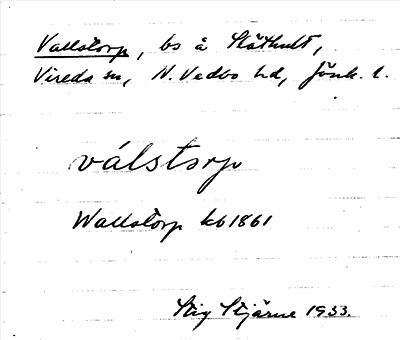 Vallstorp, bs å Stäthult,
Vireda sn, N. Vedbo hd, Jönk. l.
válstorp
Wallstorp kb 1861
Stig Stjärne 1933.